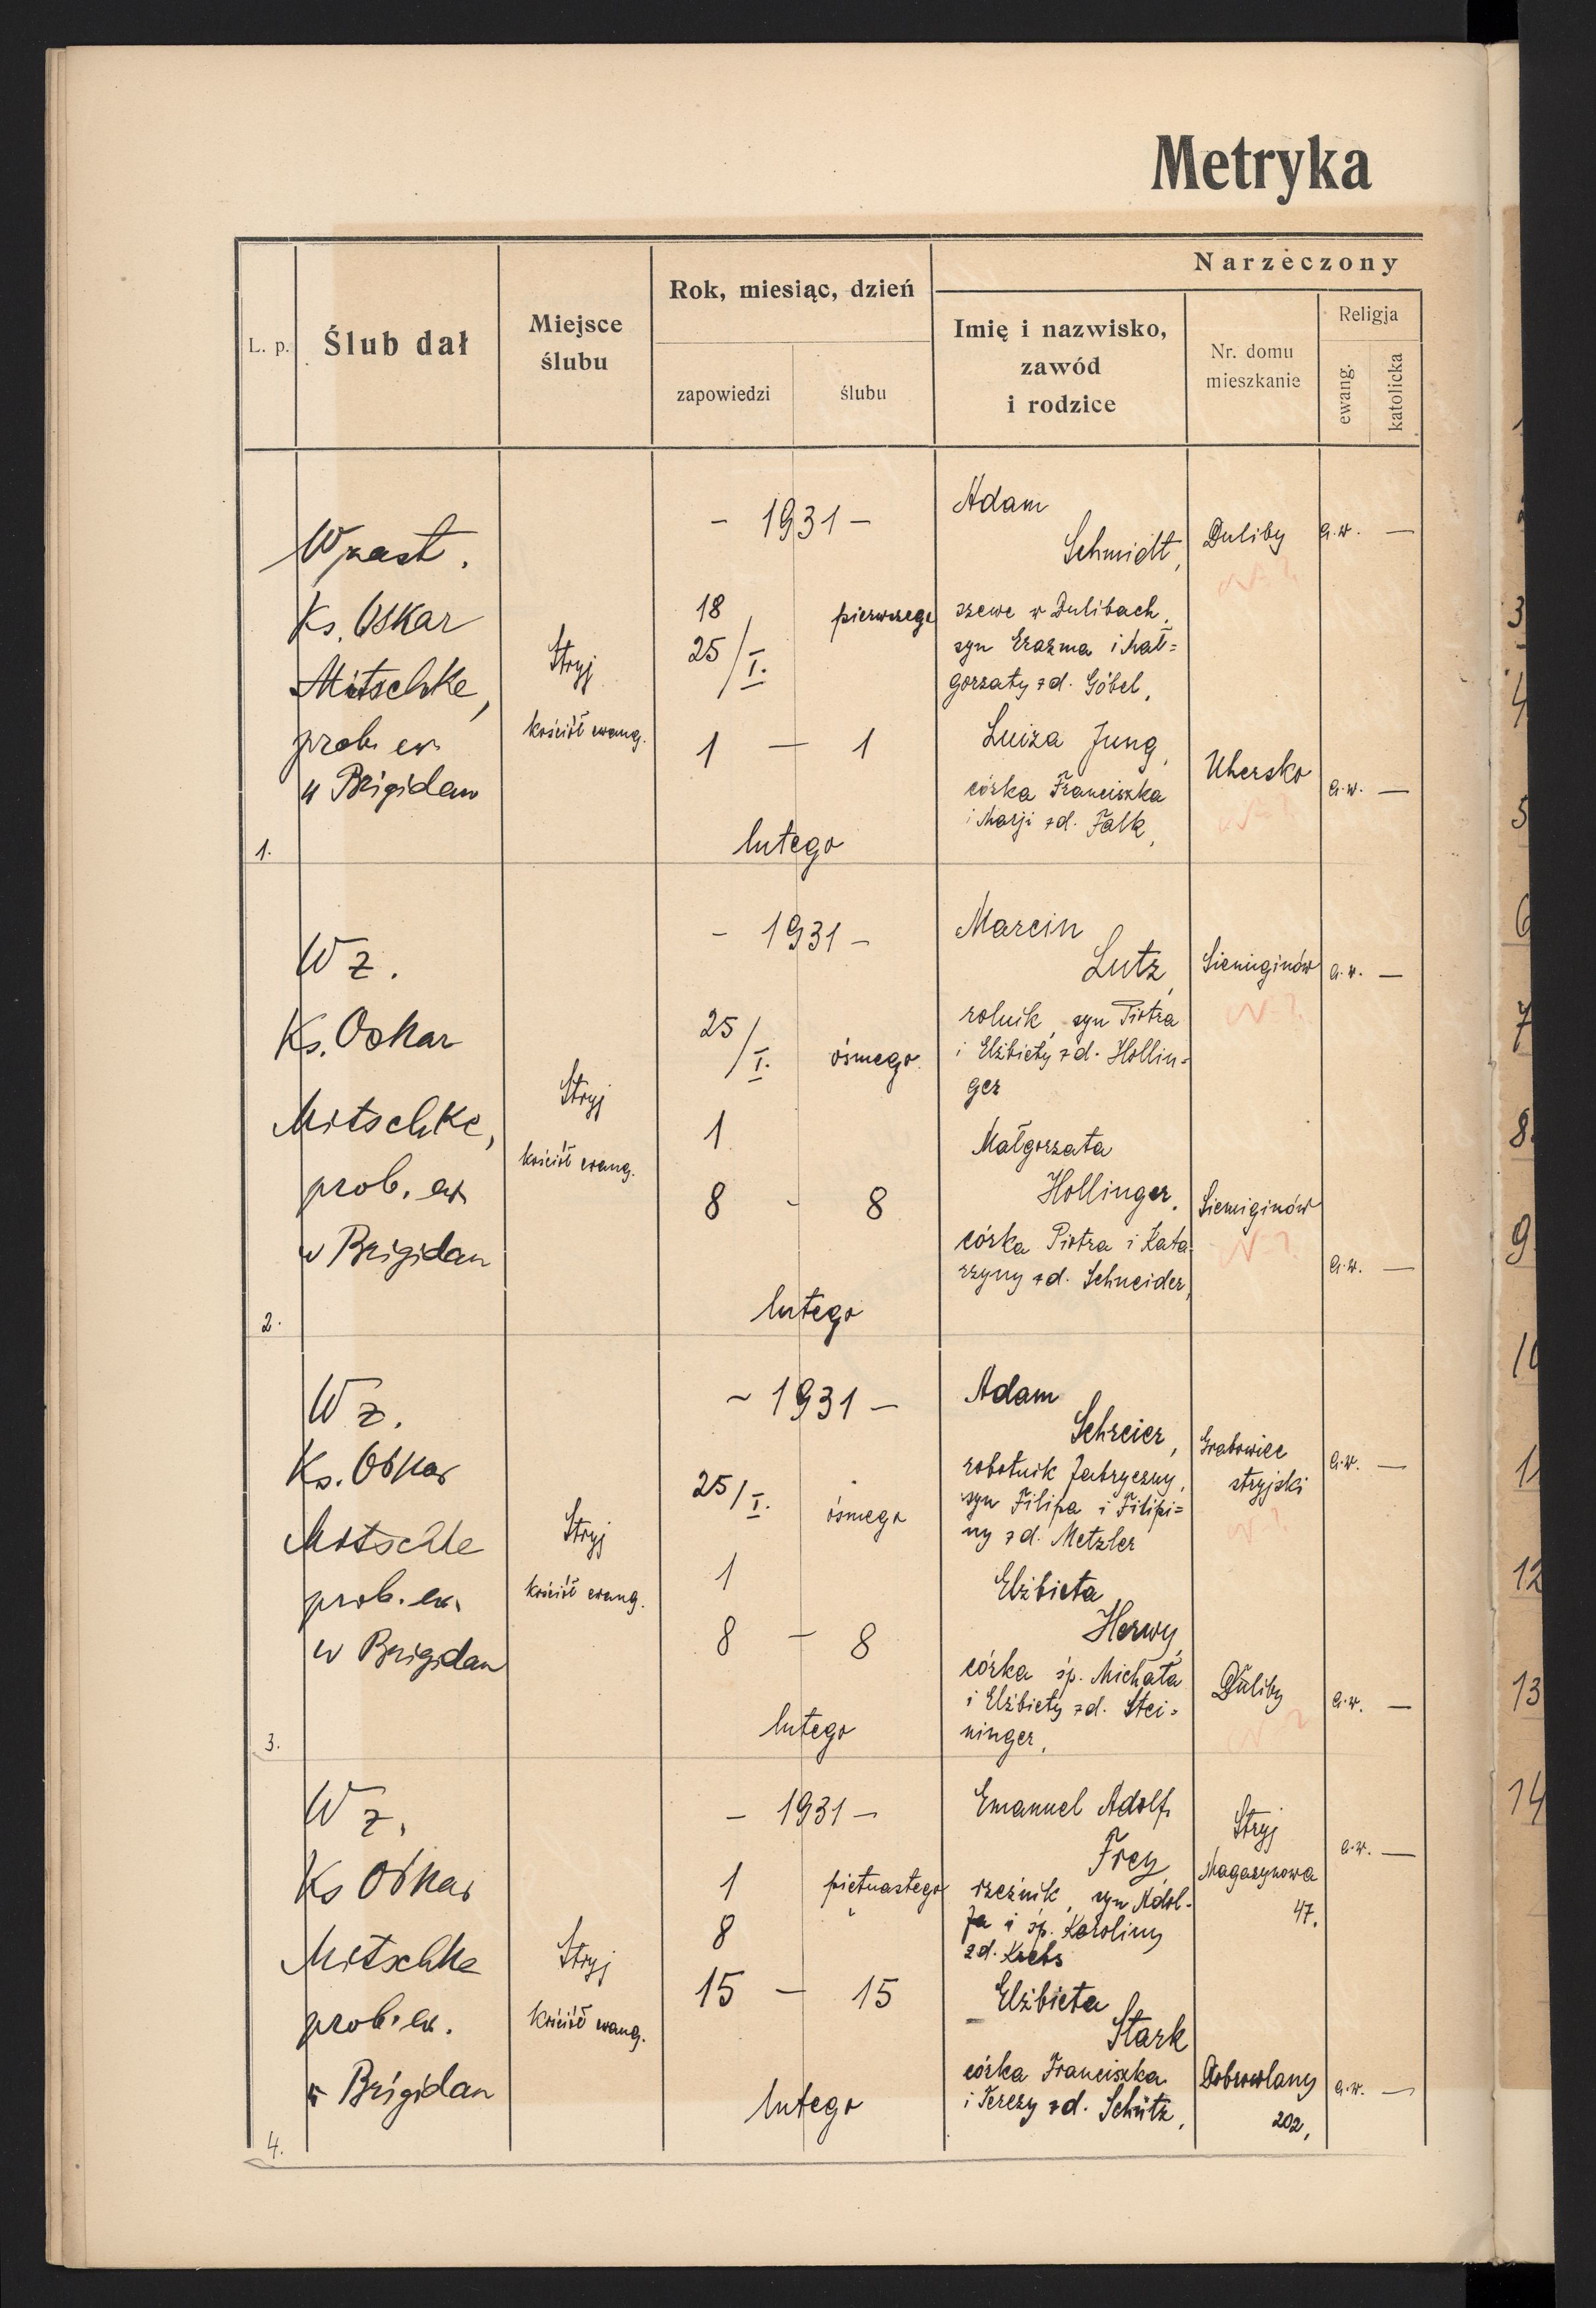 Metryka
L. p.
Ślub dał
Miejsce
ślubu
Rok, miesiąc, dzień
zapowiedzi
ślubu
Narzeczony
Imię i nazwisko,
zawód
i rodzice
Nr. domu
mieszkanie
Religja
ewang.
katolicka
1.
W zast.
Ks. Oskar
Mitschke,
prob. ew.
w Brigidau
Stryj
kościół ewang.
- 1931 -
18
25/I.
pierwszego
1 — 1
lutego
Adam
Schmidt,
szewc w Dulibach,
syn Erazma i Mał=
gorzaty z d. Göbel,
Duliby
a.w. —
Luiza Jung,
córka Franciszka
i Marji z d. Falk,
Uhersko
a.w. —
2.
W z.
Ks. Oskar
Mitschke,
prob. ew.
w Brigidau
Stryj
kościół ewang.
- 1931 -
25/I.
ósmego
1
8 - 8
lutego
Marcin
Lutz,
rolnik, syn Piotra
i Elżbiety z d. Hollin-
ger
Siemiginów
a.w. —
Małgorzata
Hollinger,
córka Piotra i Kata
rzyny z d. Schneider,
Siemiginów
a.w. —
3.
W z.
Ks. Oskar
Mitschke
prob. ew.
w Brigidau
Stryj
kościół ewang.
- 1931 -
25/I.
ósmego
1
8 - 8
lutego
Adam
Schreier,
robotnik fabryczny,
syn Filipa i Filipi=
ny z d. Metzler
Grabowiec
stryjski
a.w. —
Elżbieta
Herwy,
córka śp. Michała
i Elżbiety z d. Stei=
ninger,
Duliby
a.w. —
4.
W z.
Ks Oskar
Mitschke
prob. ew.
w Brigidau
Stryj
kościół ewang.
- 1931 -
1
piętnastego
8
15 — 15
lutego
Emanuel Adolf
Frey,
rzeźnik, syn Adol-
fa i śp. Karoliny
z d. Krebs
Stryj
Magazynowa
47.
a.w. —
Elżbieta
Stark
córka Franciszka
i Terezy z d. Schütz,
Dobrowlany
202,
a.w. —
3
4
5
6
7
8.
9
10
11
12
13
14